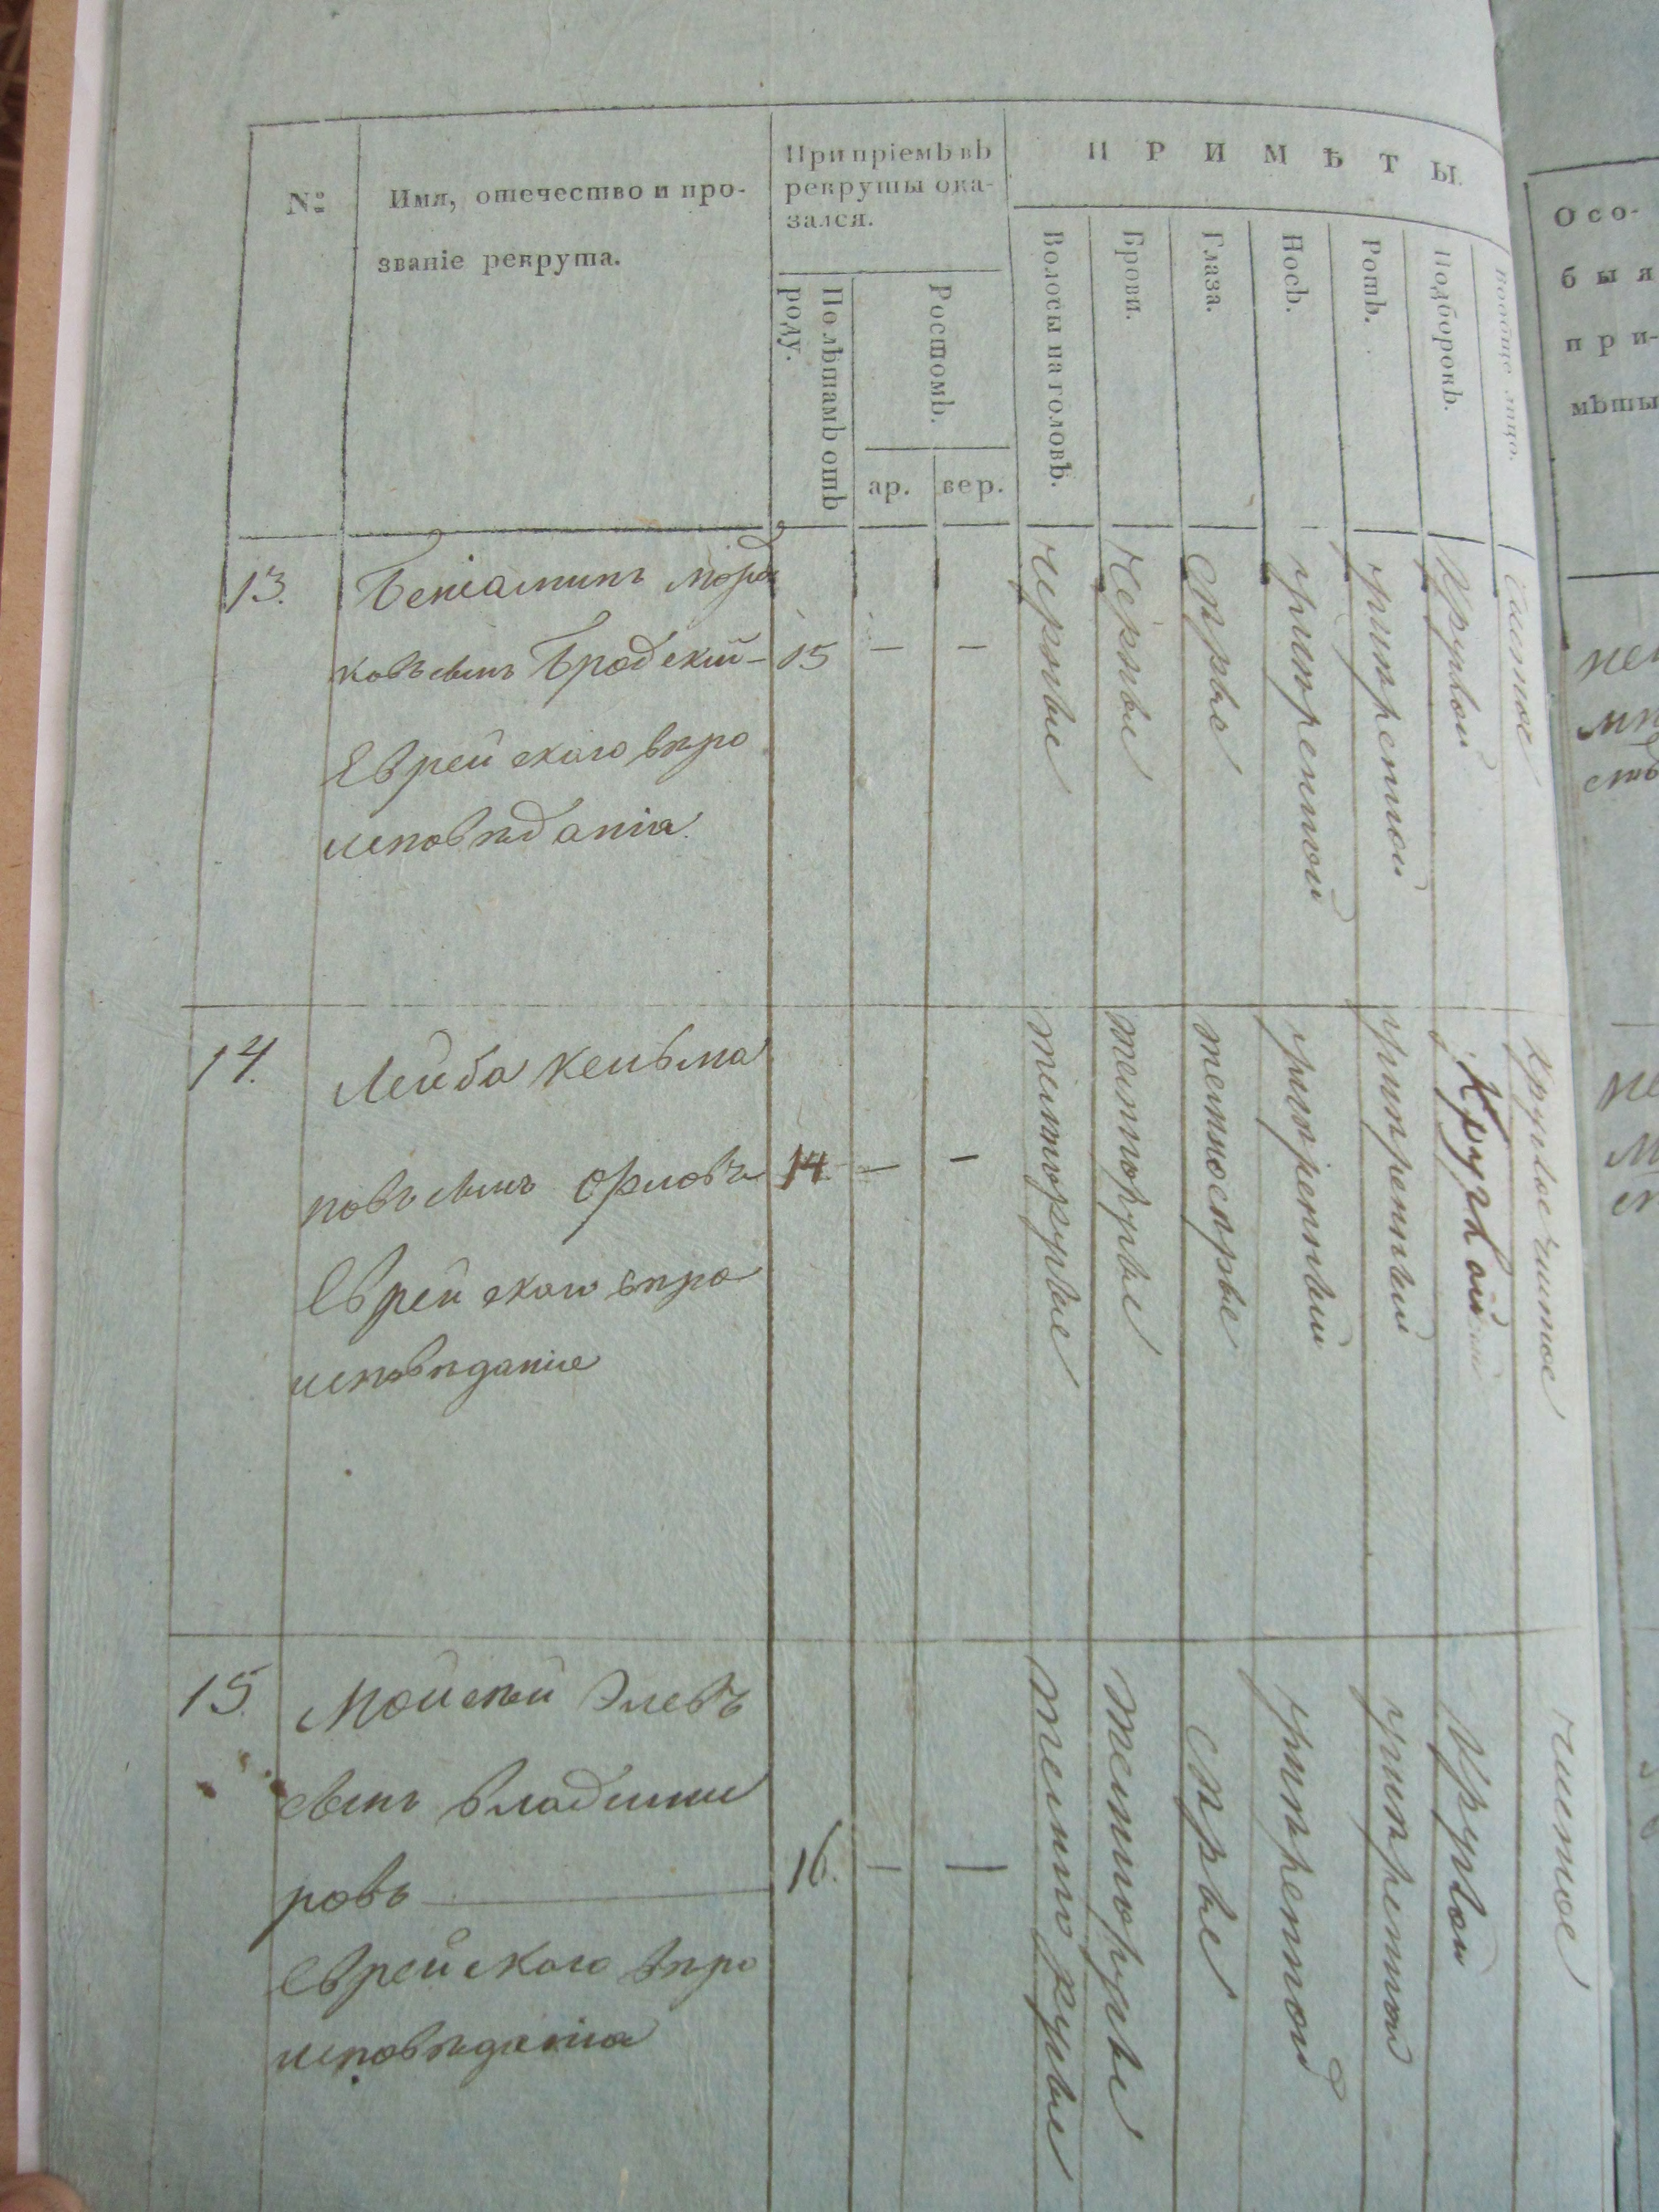 №
Имя, отечество и про-
званіе рекрута.
При пріемѣ въ
рекруты ока-
зался.
По лѣтамъ отъ
роду.
Ростомъ.
ар.
вер.
ПРИМѢТЫ.
Волосы на головѣ.
Брови.
Глаза.
Носъ.
Ротъ.
Подборокъ.
Вообще лицо.
Осо-
быя
при-
мѣты
13.
Беніаминъ Мордо
ковъ сынъ Бродский
Еврейскаго вѣро
исповѣданія.
15
—
—
черные
черные
сѣрые
умѣренной
умѣренной
круглой
чистое
14.
Лейба Кельма
новъ сынъ Орловъ
Еврейскаго вѣро
исповѣданіе
14
—
—
темнорусые
темнорусые
темносѣрые
умѣренный
умѣренный
круглой
круглое чистое
15.
Мойсей Элевъ
сынъ Владими
ровъ
Еврейскаго вѣро
исповѣданія
16.
—
—
темнорусые
темнорусые
сѣрые
умѣренной
умѣренной
круглой
чистое